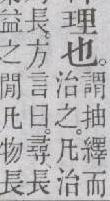 理也。謂抽繹而
治之。凡治
長。方言曰。尋長
益之閒凡物長